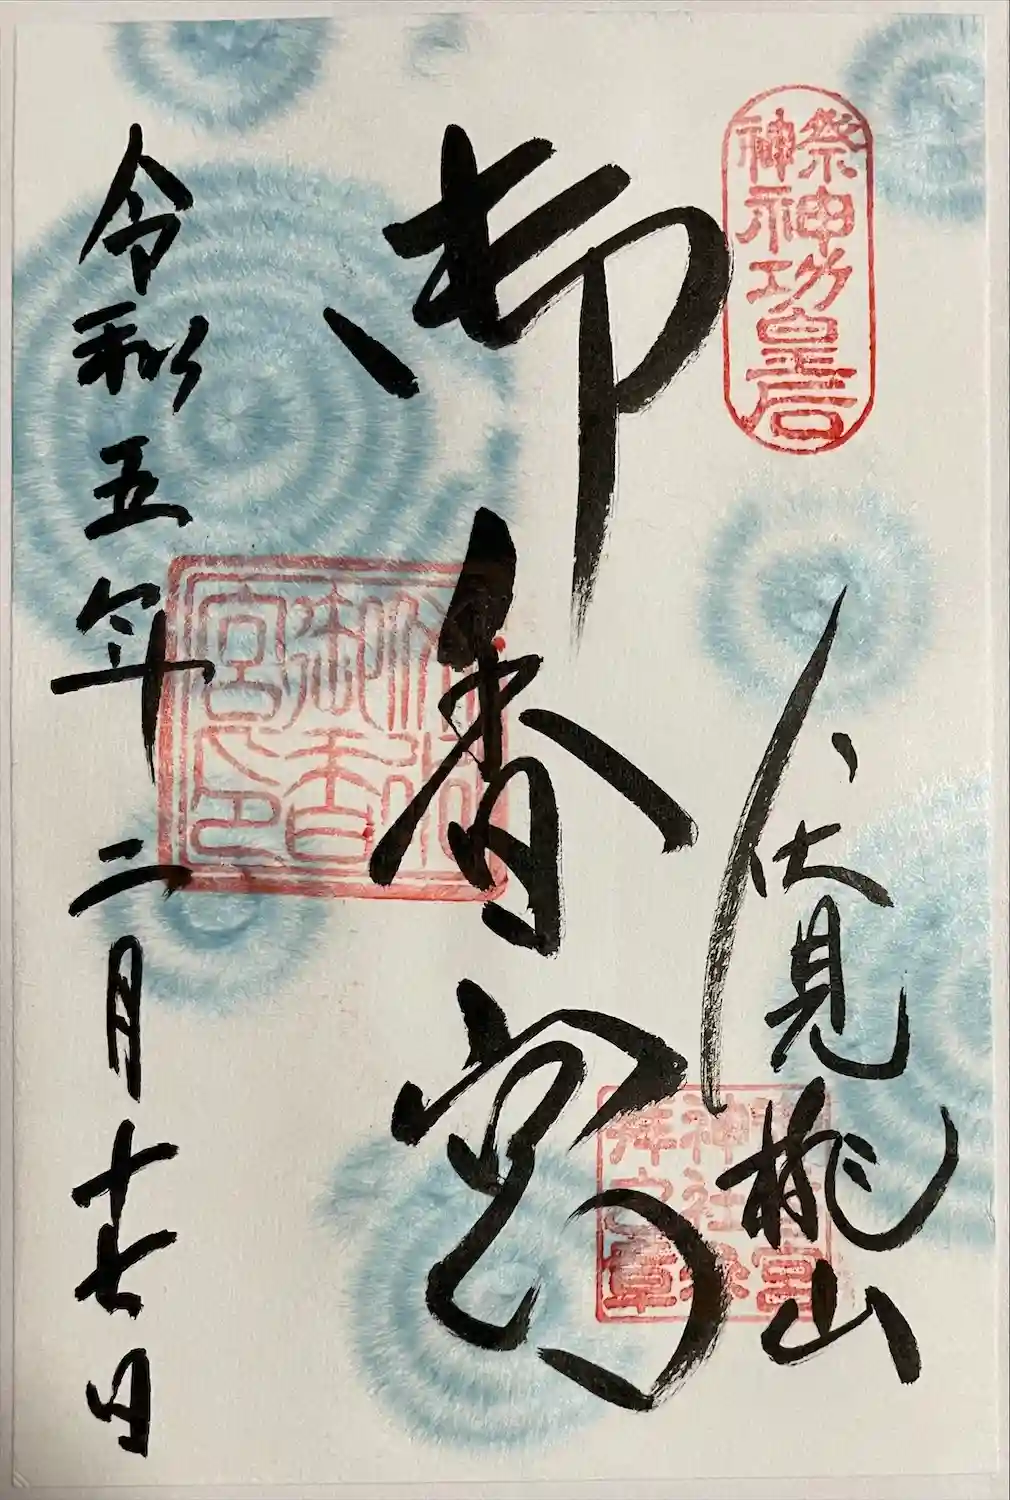 祭神
神功皇后
伏見桃山
御香宮
令和五年二月十七日
御香
宮印
神社参
拝之章